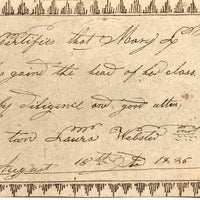 Certifies that Mary L
gaind the head of her class,
by diligence and good atten
tion Laura Webster inst
August 16th AD 1826